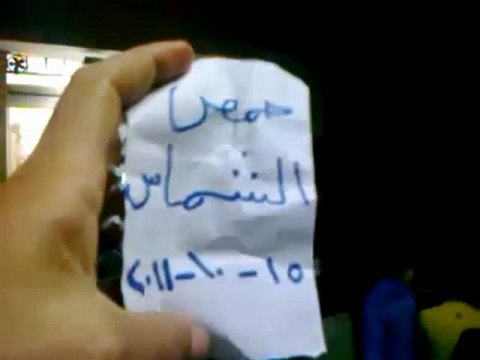 حمص
الشماس
١٥-١٠-٢٠١١